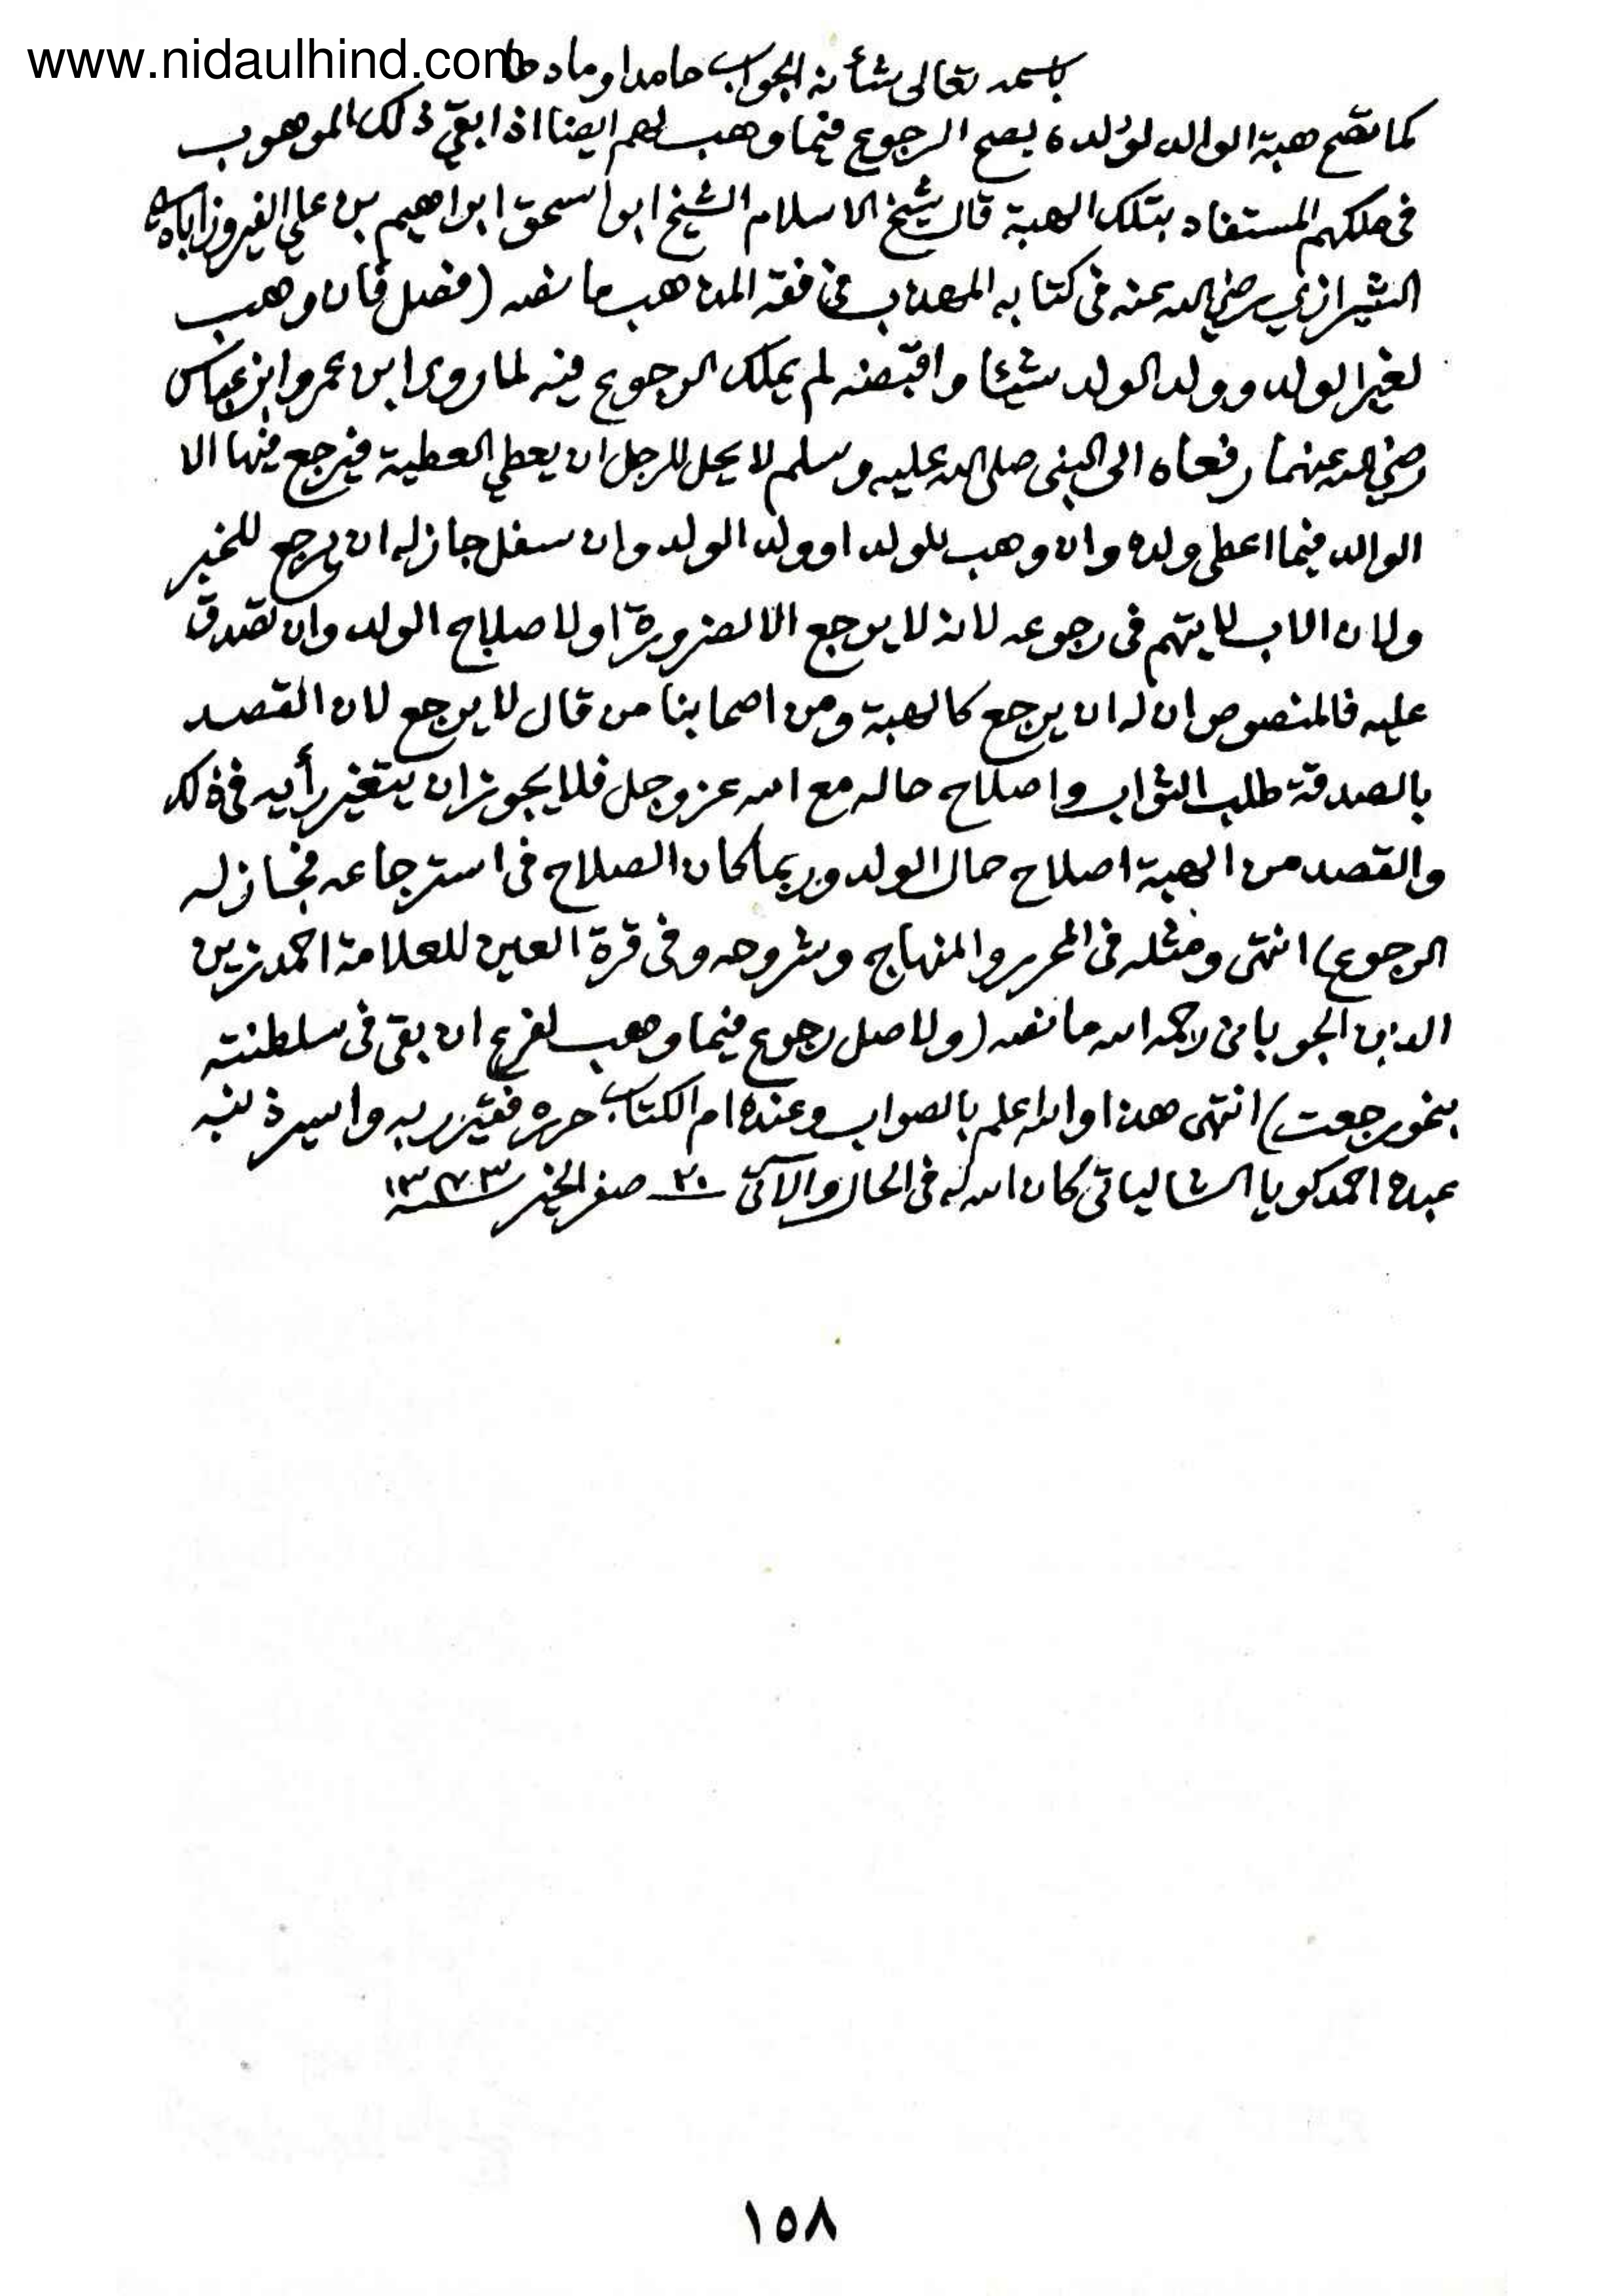 www.nidaulhind.com
باسمه تعالى شأنه الجواب حامدا ومادحا
كما تصح هبة الوالد لولده يصح الرجوع فيما وهب لهم ايضا اذا بقي ذلك الموهوب
فى ملكهم المستفاد بتلك الهبة قال شيخ الاسلام الشيخ ابو اسحق ابراهيم بن علي الفيروزابادي
الشيرازي رضي الله عنه فى كتابه المهذب فى فقه المذهب ما نصه (فصل فان وهب
لغير الولد وولد الولد شيئا واقبضه لم يملك الرجوع فيه لما روى ابن عمر وابن عباس
رضي الله عنهما رفعاه الى النبى صلى الله عليه وسلم لا يحل للرجل ان يعطي العطية فيرجع فيها الا
الوالد فيما اعطى ولده وان وهب للولد او ولد الولد وان سفل جاز له ان يرجع للخبر
ولان الاب لا يتهم فى رجوعه لانه لا يرجع الا لضرورة او لاصلاح الولد وان تصدق
عليه فالمنصوص ان له ان يرجع كالهبة ومن اصحابنا من قال لا يرجع لان القصد
بالصدقة طلب الثواب واصلاح حاله مع الله عز وجل فلا يجوز ان يتغير رأيه فى ذلك
والقصد من الهبة اصلاح حال الولد وربما كان الصلاح فى استرجاعه فجاز له
الرجوع) انتهى ومثله فى المحرر والمنهاج وشروحه وفى قرة العين للعلامة احمد زين
الدين الجوبانى رحمه الله ما نصه (ولاصل رجوع فيما وهب لفرع ان بقى فى سلطنته
بنحو رجعت) انتهى هذا والله اعلم بالصواب وعنده ام الكتاب حرره فقير ربه واسير ذنبه
عبده احمد كويا الشالياتى كان الله له فى الحال والآتى ٢٠ صفر الخير سنة ١٣٧٣
١٥٨